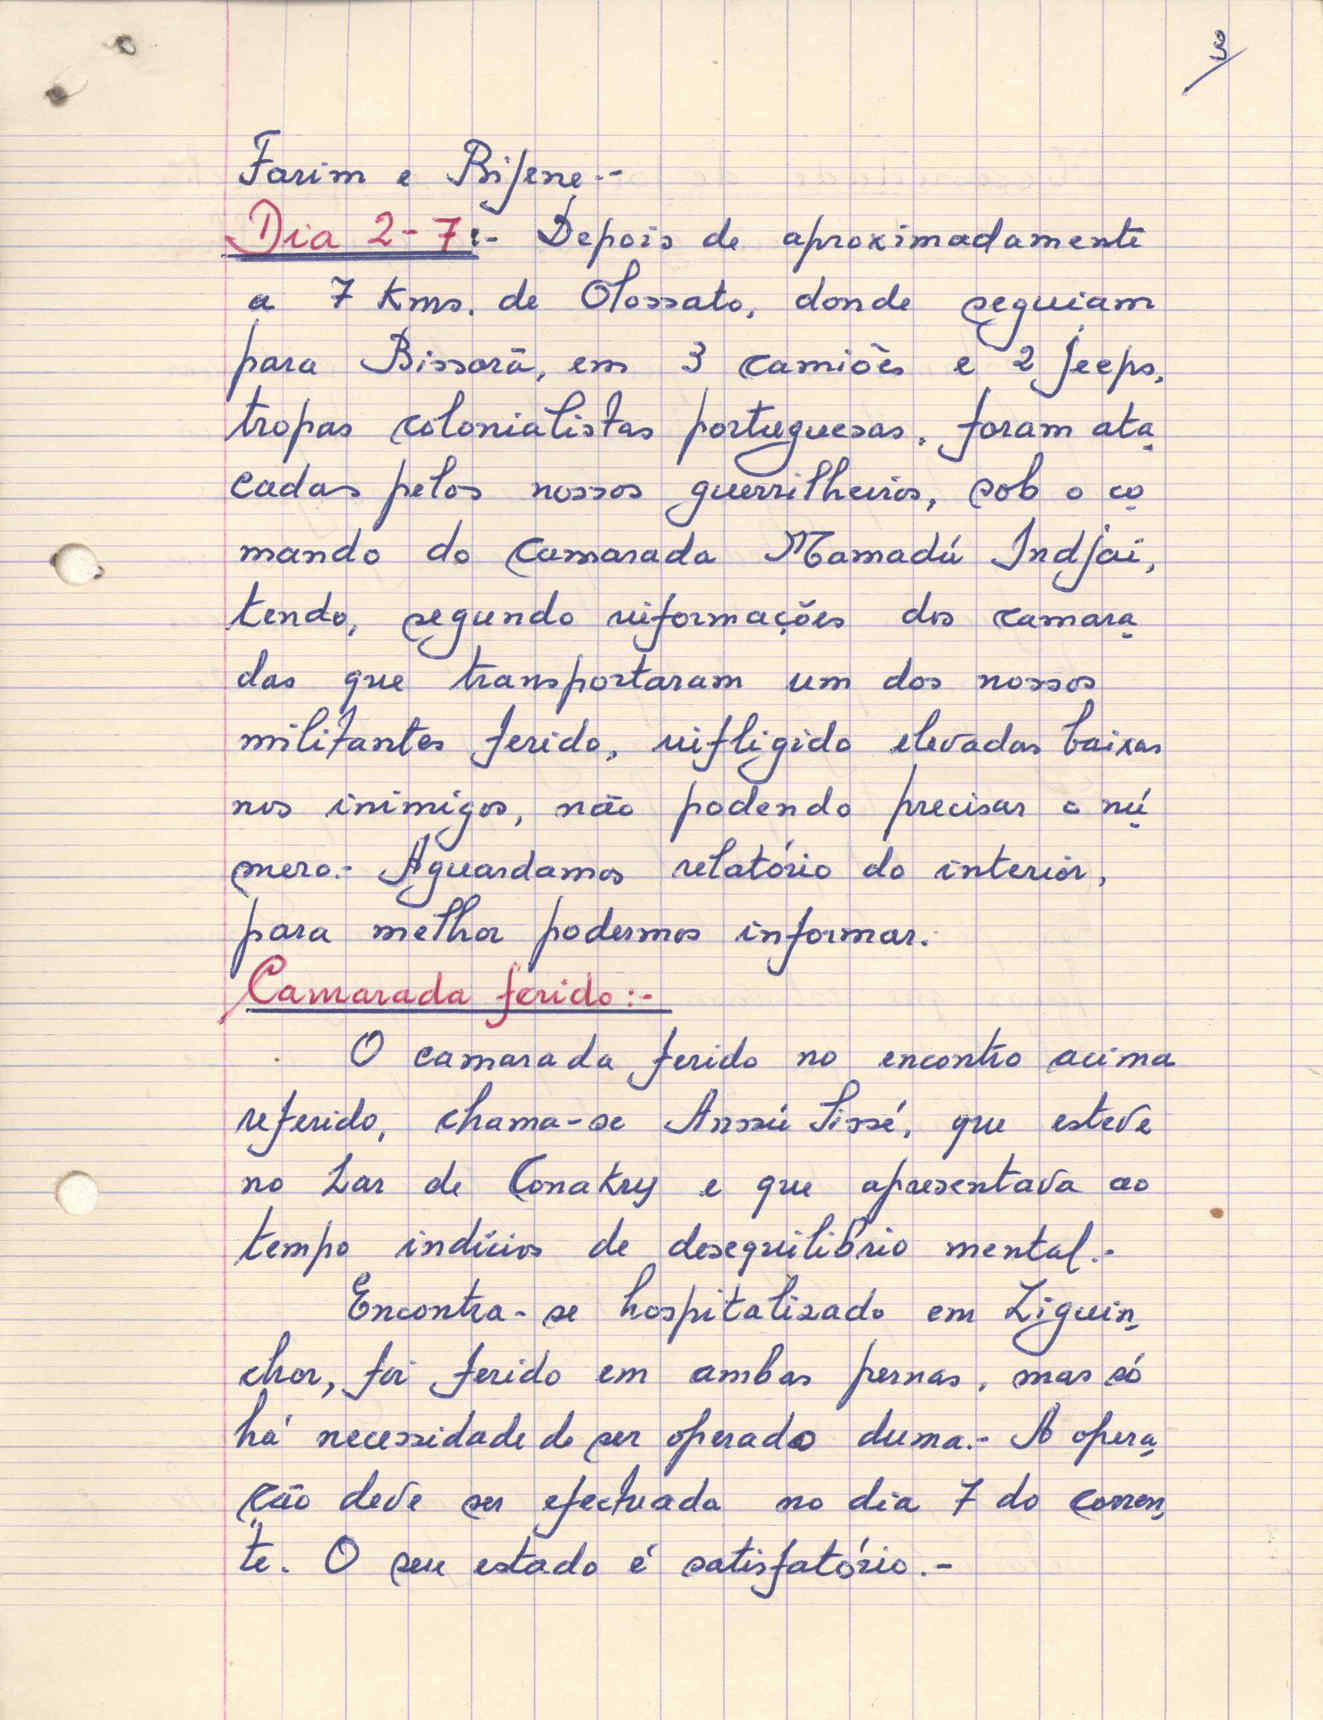 3
Farim e Bijene.-
Dia 2-7:- Depois de aproximadamente
a 7 Kms. de Olossato, donde seguiam
para Bissorã, em 3 camiões e 2 jeeps,
tropas colonialistas portuguesas, foram ata
cadas pelos nossos guerrilheiros, sob o co
mando do camarada Mamadú Indjai,
tendo, segundo informações dos camara
das que transportaram um dos nossos
militantes ferido, infligido elevadas baixas
nos inimigos, não podendo precisar o nú
mero.- Aguardamos relatório do interior,
para melhor podermos informar.
Camarada ferido:-
O camarada ferido no encontro acima
referido, chama-se Anssú Sissé, que esteve
no Lar de Conakry e que apresentava ao
tempo indícios de desequilíbrio mental.-
Encontra-se hospitalizado em Ziguin
chor, foi ferido em ambas pernas, mas só
há necessidade de ser operado duma.- A opera
ção deve ser efectuada no dia 7 do corren
te. O seu estado é satisfatório.-